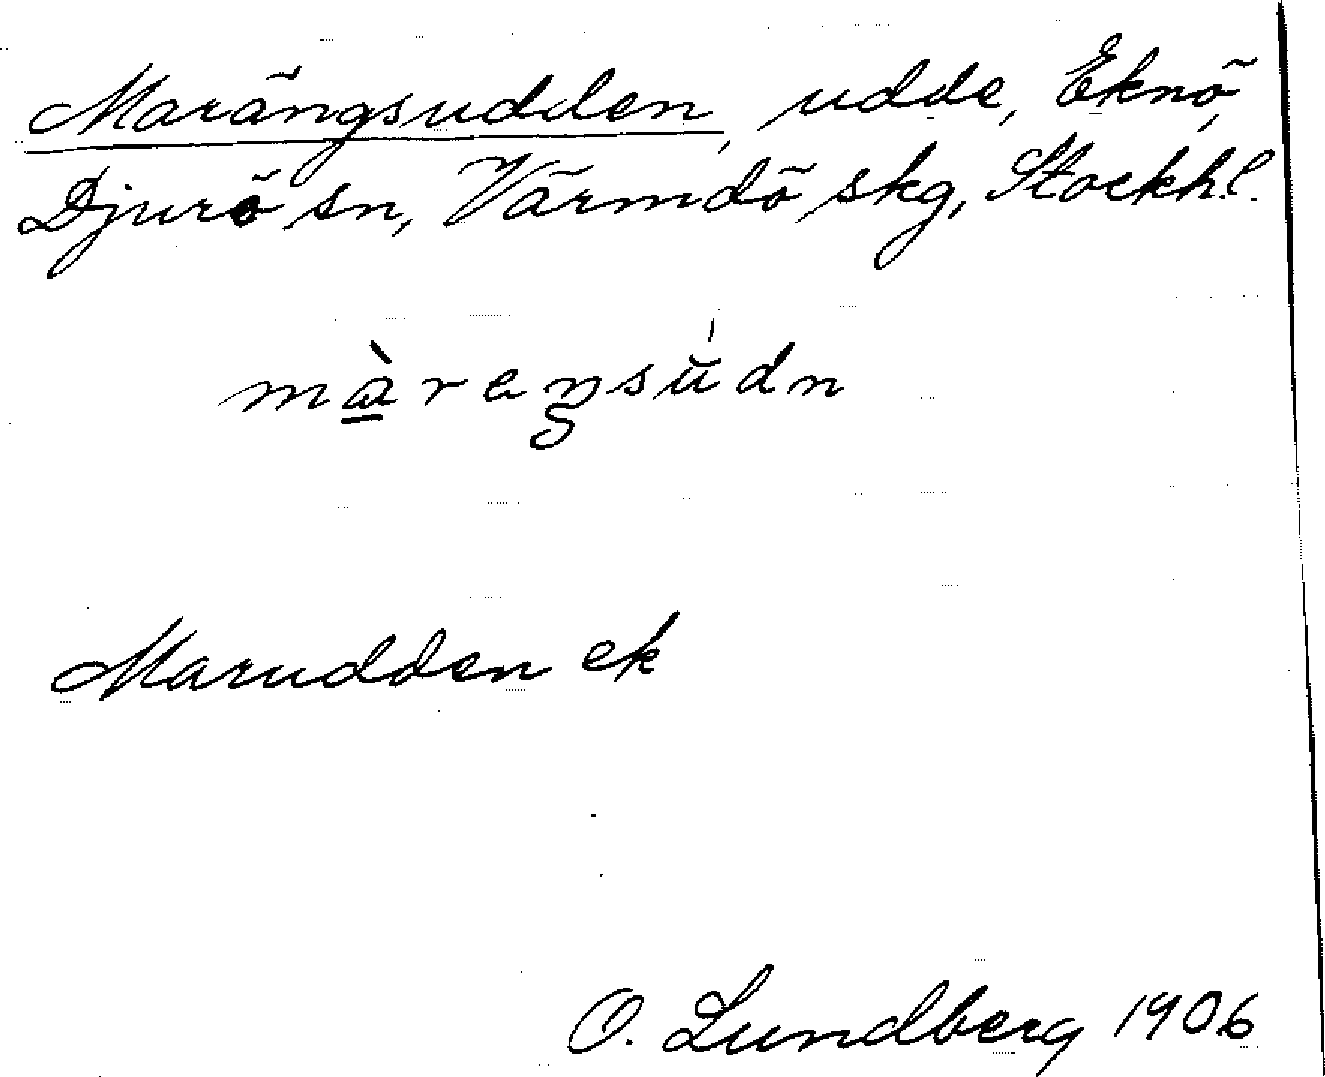 Marängsudden, udde, Eknö,
Djurö sn, Värmdö skg, Stockh.l.
màreŋsŭ́dn
Marudden ek
O. Lundberg 1906